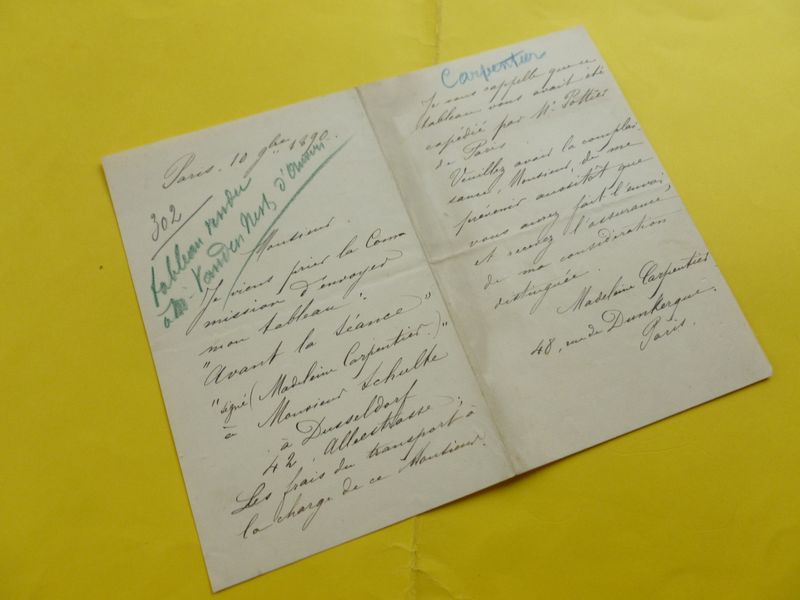 Paris. 10 9bre 1890.
302
tableau vendu
à Mr. Vanden Nest d'Anvers
Monsieur.
Je viens prier la Com
mission d'envoyer
mon tableau:
"Avant la Séance"
"signé (Madeleine Carpentier.)"
à Monsieur Schulte
à Dusseldorf
42, Alleestrasse;
Les frais du transport à
la charge de ce Monsieur.
Carpentier
Je vous rappelle que ce
tableau vous avait été
expédié par Mr Pottier
de Paris
Veuillez avoir la complai
sance, Monsieur, de me
prévenir aussitôt que
vous aurez fait l'envoi,
et recevez l'assurance,
de ma considération
distinguée.
Madeleine Carpentier
48, rue de Dunkerque,
Paris.